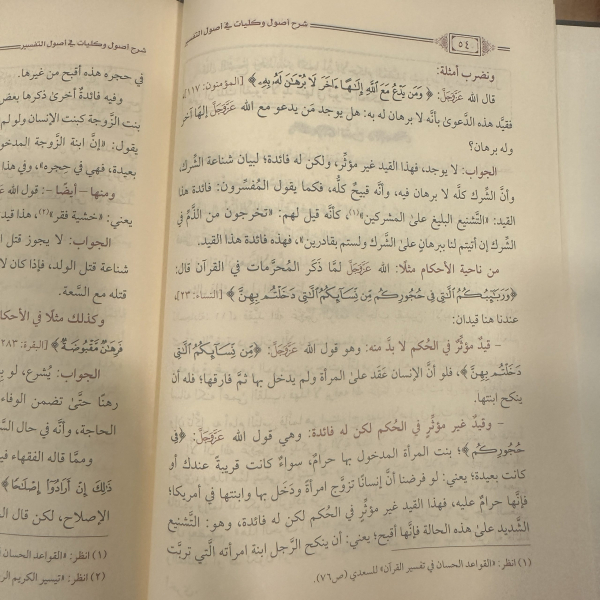 شرح أصول وكليات في أصول التفسير
٥٤
ونضرب أمثلة:
قال الله عَزَّوَجَلَّ: ﴿وَمَن يَدْعُ مَعَ ٱللَّهِ إِلَٰهًا ءَاخَرَ لَا بُرْهَٰنَ لَهُۥ بِهِۦ﴾ [المؤمنون: ١١٧]،
فقيَّد هذه الدَّعوىٰ بأنَّه لا برهان له به: هل يوجد مَن يدعو مع الله عَزَّوَجَلَّ إلهًا آخر
وله برهان؟
الجواب: لا يوجد، فهذا القيد غير مؤثِّر، ولكن له فائدة؛ لبيان شناعة الشِّرك،
وأنَّ الشِّرك كلَّه لا برهان فيه، وأنَّه قبيحٌ كلُّه، فكما يقول المُفسِّرون: فائدة هذا
القيد: «التَّشنيع البليغ علىٰ المشركين»(١)، كأنَّه قيل لهم: «تخرجون من الذَّمِّ في
الشِّرك إن أتيتم لنا ببرهانٍ علىٰ الشِّرك ولستم بقادرين»، فهذه فائدة هذا القيد.
من ناحية الأحكام مثلًا: الله عَزَّوَجَلَّ لمَّا ذَكَر المُحرَّمات في القرآن قال:
﴿وَرَبَٰٓئِبُكُمُ ٱلَّٰتِي فِي حُجُورِكُم مِّن نِّسَآئِكُمُ ٱلَّٰتِي دَخَلْتُم بِهِنَّ﴾ [النساء: ٢٣]،
عندنا هنا قيدان:
- قيدٌ مؤثِّرٌ في الحُكم لا بدَّ منه: وهو قول الله عَزَّوَجَلَّ: ﴿مِّن نِّسَآئِكُمُ ٱلَّٰتِي
دَخَلْتُم بِهِنَّ﴾، فلو أنَّ الإنسان عَقَد علىٰ المرأة ولم يدخل بها ثمَّ فارقها؛ فله أن
ينكح ابنتها.
- وقيدٌ غير مؤثِّرٍ في الحُكم لكن له فائدة: وهي قول الله عَزَّوَجَلَّ: ﴿فِي
حُجُورِكُم﴾؛ بنت المرأة المدخول بها حرامٌ، سواءٌ كانت قريبةً عندك أو
كانت بعيدة؛ يعني: لو فرضنا أنَّ إنسانًا تزوَّج امرأةً ودَخَل بها وابنتها في أمريكا؛
فإنَّها حرام عليه، فهذا القيد غير مؤثِّرٍ في الحكم لكن له فائدة، وهو: التَّشنيع
الشَّديد علىٰ هذه الحالة فإنَّها أقبح؛ يعني: أن ينكح الرَّجل ابنة امرأته الَّتي تربَّت
(١) انظر: «القواعد الحسان في تفسير القرآن» للسعدي (ص٧٦).
شرح أصول وكليات في أصول التفسير
في حجره هذه أقبح من غيرها.
وفيه فائدةٌ أخرىٰ ذكرها بعض
بنت الزَّوجة كبنت الإنسان ولو لم
يقول: «إنَّ ابنة الزَّوجة المدخو
بعيدة، فهي في حِجره»، وفي هذا
ومنها - أيضًا -: قول الله عَ
يعني: «خشية فقر»(٢)، هذا قيد
الجواب: لا يجوز قتل ا
شناعة قتل الولد، فإذا كان لا
قتله مع السَّعة.
وكذلك مثلًا في الأحكا
فَرِهَٰنٌ مَّقْبُوضَةٌ﴾ [البقرة: ٢٨٣
الجواب: يُشرع، لو
رهنًا حتَّىٰ تضمن الوفاء
الحاجة، وأنَّه في حال ال
وممَّا قاله الفقهاء في
ذَٰلِكَ إِنْ أَرَادُوٓا۟ إِصْلَٰحًا﴾
الإصلاح، لكن قال ال
(١) انظر: «القواعد الحسان
(٢) انظر: «تيسير الكريم الر